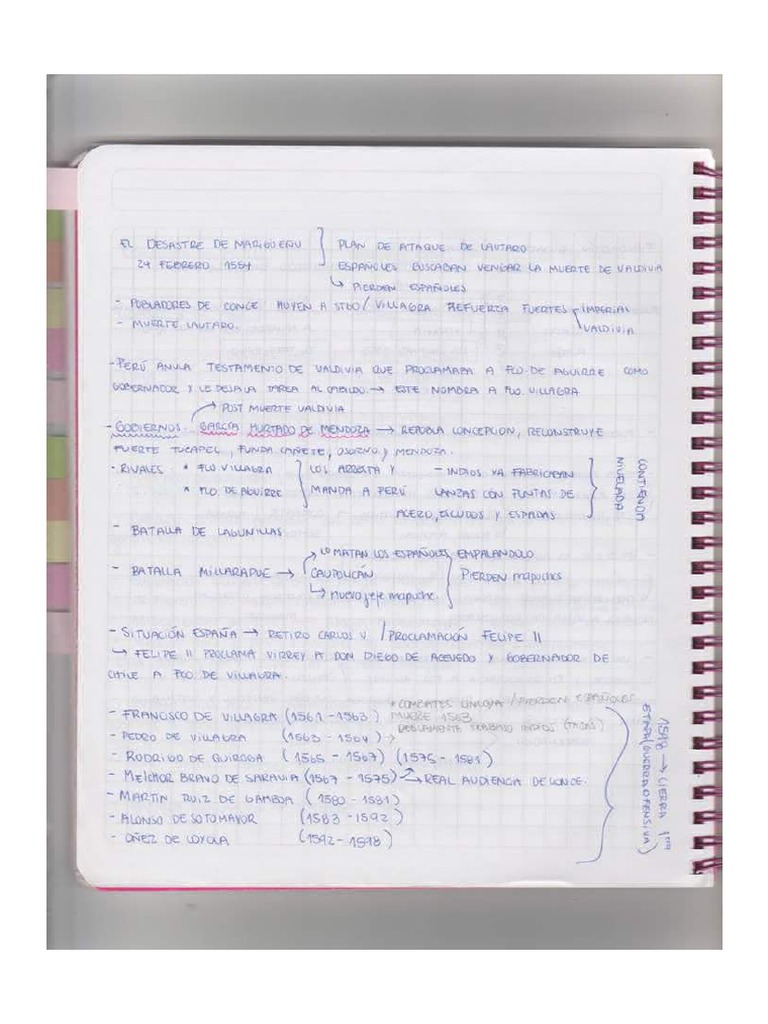 EL DESASTRE DE MARIGUEÑU } PLAN DE ATAQUE DE LAUTARO
24 FEBRERO 1554 - ESPAÑOLES BUSCABAN VENGAR LA MUERTE DE VALDIVIA
↳ PIERDEN ESPAÑOLES
- POBLADORES DE CONCE HUYEN A STGO / VILLAGRA REFUERZA FUERTES IMPERIAL
- MUERTE LAUTARO. VALDIVIA
- PERÚ ANULA TESTAMENTO DE VALDIVIA QUE PROCLAMABA A FCO. DE AGUIRRE COMO
GOBERNADOR Y LE DEJA LA TAREA AL CABILDO. → ESTE NOMBRA A FCO. VILLAGRA
→ POST MUERTE VALDIVIA
- GOBIERNOS. GARCÍA HURTADO DE MENDOZA → REPUEBLA CONCEPCIÓN, RECONSTRUYE
FUERTE TUCAPEL, FUNDA CAÑETE, OSORNO, Y MENDOZA.
- RIVALES * FCO VILLAGRA } LOS ARRESTA Y - INDIOS YA FABRICABAN
* FCO. DE AGUIRRE MANDA A PERÚ LANZAS CON PUNTAS DE
ACERO, ESCUDOS Y ESPADAS
CONTIENDA
NIVELADA
- BATALLA DE LAGUNILLAS
→ LO MATAN LOS ESPAÑOLES EMPALANDOLO
- BATALLA MILLARAPUE → CAUPOLICÁN } PIERDEN mapuches
↳ nuevo jefe mapuche.
- SITUACIÓN ESPAÑA → RETIRO CARLOS V / PROCLAMACIÓN FELIPE II
↳ FELIPE II PROCLAMA VIRREY A DON DIEGO DE ACEVEDO Y GOBERNADOR DE
CHILE A FCO. DE VILLAGRA.
* COMBATES LINCOYA / PIERDEN ESPAÑOLES
- FRANCISCO DE VILLAGRA (1561 - 1563) MUERE 1563
- PEDRO DE VILLAGRA (1563 - 1564) → REGLAMENTA TRABAJO INDIOS (TASAS)
- RODRIGO DE QUIROGA (1565 - 1567) (1575 - 1581)
- MELCHOR BRAVO DE SARAVIA (1567 - 1575) → REAL AUDIENCIA DE CONCE.
- MARTÍN RUIZ DE GAMBOA (1580 - 1581)
- ALONSO DE SOTOMAYOR (1583 - 1592)
- OÑEZ DE LOYOLA (1592 - 1598)
1598 → CIERRA 1era
ETAPA (GUERRA OFENSIVA)